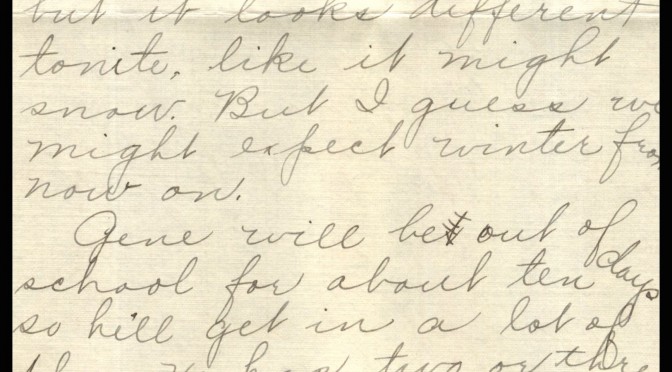 but it looks different
tonite, like it might
snow. But I guess we
might expect winter from
now on.
Gene will be out of
school for about ten days
so hell get in a lot of
two or thre